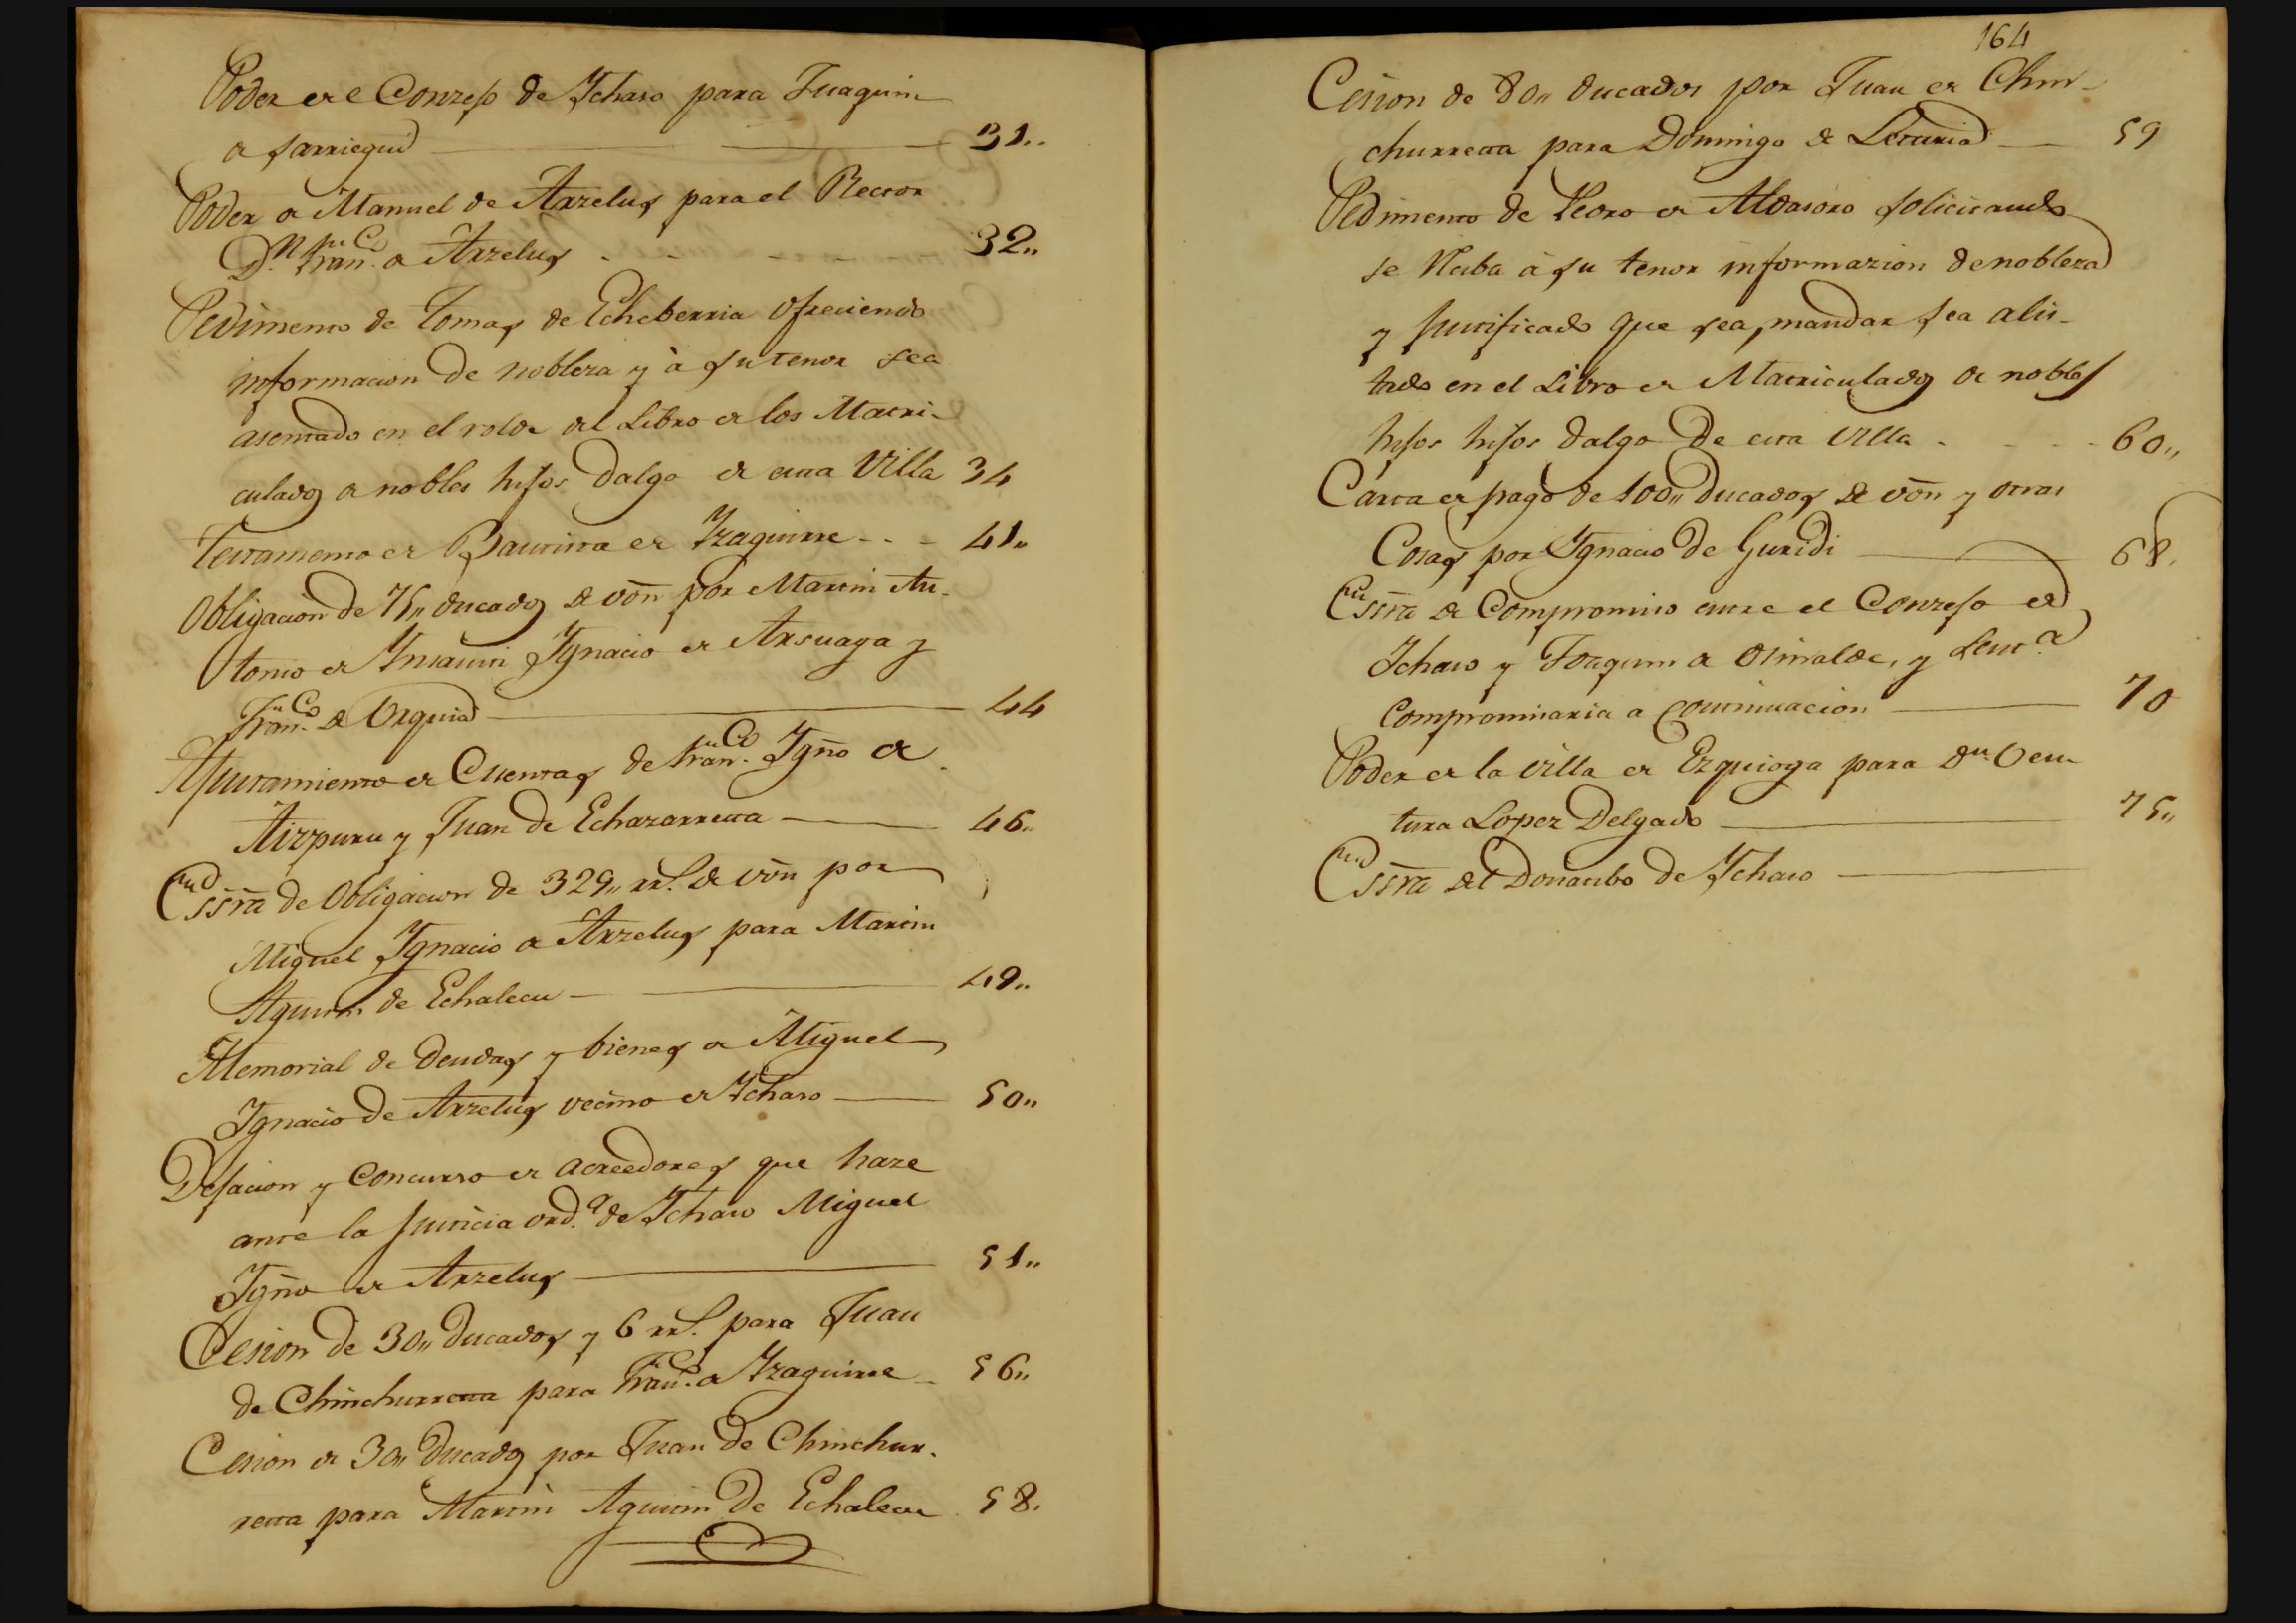 Poder de el Conzejo de Ychaso para Juaquin
de Sarriegui 31..
Poder de Manuel de Arzelus para el Rector
D.n Fran.co de Arzelus 32,,
Pedimento de Tomas de Echeberria ofreciendo
informacion de nobleza y à su tenor sea
asentado en el rolde del Libro de los Matri-
culados de nobles hijos dalgo de esta Villa 34
Testamento de Bautista de Yzaguirre 41,,
Obligacion de 75,, ducados de von por Martin An-
tonio de Ynsausti Ygnacio de Arsuaga y
Fran.co de Urquia 44
Ajustamiento de Cuentas de Fran.co Ygno de
Aizpuru y Juan de Echazarreta 46,,
Essra de Obligacion de 329,, rr.s de von por
Miguel Ygnacio de Arzelus para Martin
Agustin de Echalecu 49,,
Memorial de Deudas y bienes de Miguel
Ygnacio de Arzelus vecino de Ychaso 50,,
Dejacion y Concurso de acreedores que haze
ante la Justicia ord.a de Ychaso Miguel
Ygno de Arzelus 51,,
Cesion de 30,, Ducados y 6 rr.s para Juan
de Chinchurreta para Fran.co de Yzaguirre 56,,
Cesion de 30,, Ducados por Juan de Chinchur-
reta para Martin Agustin de Echalecu 58.
164
Cesion de 80,, ducados por Juan de Chin-
churreta para Domingo de Lecuria 59
Pedimento de Pedro de Aldasoro solicitando
se reciba à su tenor informazion de nobleza
y Justificado que sea, mandar sea alis-
tado en el Libro de Matriculados de nobles
hijos hijos dalgo de esta Villa 60,,
Carta de pago de 100,, Ducados de von y otras
Cosas por Ygnacio de Guridi 68.
Essra de Compromiso entre el Conzejo de
Ychaso y Joaquin de Osinalde, y Sent.a
Compromisaria a continuacion 70
Poder de la Villa de Ezquioga para dn Ven-
tura Lopez Delgado 75,,
Essra del Donatibo de Ychaso